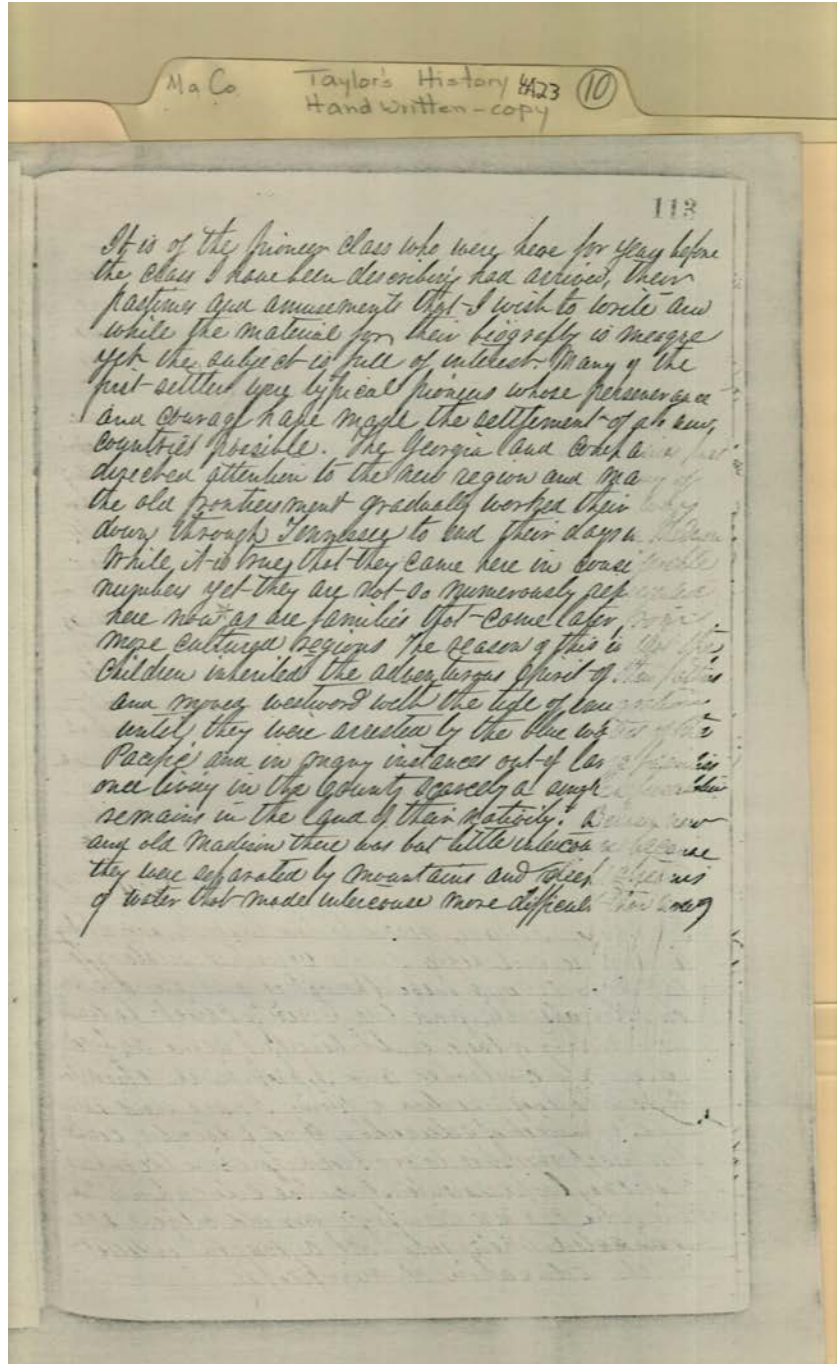 Ma Co Taylor's History 4A23 10
Hand written - copy
113
It is of the pioneer class who were here for years before
the class I have been describing had arrived, their
pastimes and amusements that I wish to write and
while the material for their biografty is meagre
yet the subject is full of interest. Many of the
first settlers were typical pioneers whose perseverance
and courage have made the settlement of all new
countries possible. The Georgia land
directed attention to the new region and many of
the old frontiersment gradually worked their way
down through Tennessee to end their days in
While it is true that they came here in
number yet they are not so numerously
here now as are families that came later,
more cultured regions The reason of this is that the
Children inherited the adventurous spirit of their
and moved westword with the tide of
until they were arrested by the blue waters of the
Pacific and in many instances out of
once living in the county scarcely a
remains in the land of their nativity. Between new
and old Madison there was but little intercourse because
they were separated by mountains and
of water that made intercouse more difficult than now